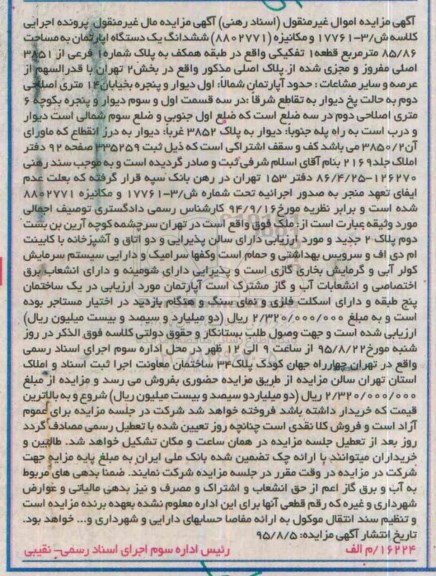 آگهی مزایده اموال غیرمنقول (اسناد رهنی) آگهی مزایده مال غیرمنقول پرونده اجرایی
کلاسه ش/۳-۱۷۷۶۱ و مکانیزه (۸۸۰۲۷۷۱) ششدانگ یک دستگاه آپارتمان به مساحت
۸۵/۸۶ مترمربع قطعه۱ تفکیکی واقع در طبقه همکف به پلاک شماره۱ فرعی از ۳۸۵۱
اصلی مفروز و مجزی شده از پلاک اصلی مذکور واقع در بخش۲ تهران با قدرالسهم از
عرصه و سایر مشاعات : حدود آپارتمان شمالاً: اول دیوار و پنجره بخیابان۱۴ متری اصلاحی
دوم به حالت پخ دیوار به تقاطع شرقاً :در سه قسمت اول و سوم دیوار و پنجره بکوچه ۶
متری اصلاحی دوم در سه ضلع است که ضلع اول جنوبی و ضلع سوم شمالی است دیوار
و درب است به راه پله جنوباً: دیوار به پلاک ۳۸۵۲ غرباً: دیوار به درز انقطاع که ماورای
آن۳۸۵۰/۲ می باشد کف و سقف اشتراکی است که ذیل ثبت ۳۳۵۲۵۹ صفحه ۹۲ دفتر
املاک جلد۲۱۶۹ بنام آقای اسلام شرفی ثبت و صادر گردیده است و به موجب سند رهنی
۱۲۶۲۷۰-۸۶/۴/۲۵ دفتر ۱۵۳ تهران در رهن بانک سپه قرار گرفته که بعلت عدم
ایفای تعهد منجر به صدور اجرائیه تحت شماره ش/۳-۱۷۷۶۱ و مکانیزه ۸۸۰۲۷۷۱
شده است و برابر نظریه مورخ۹۴/۹/۱۶ کارشناس رسمی دادگستری توصیف اجمالی
مورد وثیقه عبارت است از: ملک فوق واقع است در تهران سرچشمه کوچه آرین بن بست
دوم پلاک ۲ جدید و مورد ارزیابی دارای سالن پذیرایی و دو اتاق و آشپزخانه با کابینت
ام دی اف و سرویس بهداشتی و حمام است وکفها سرامیک و دارایی سیستم سرمایش
کولر آبی و گرمایش بخاری گازی است و پذیرایی دارای شومینه و دارای انشعاب برق
اختصاصی و انشعابات آب و گاز مشترک است آپارتمان مورد ارزیابی در یک ساختمان
پنج طبقه و دارای اسکلت فلزی و نمای سنگ و هنگام بازدید در اختیار مستاجر بوده
است و به مبلغ ۲/۳۲۰/۰۰۰/۰۰۰ ریال (دو میلیارد و سیصد و بیست میلیون ریال)
ارزیابی شده است و جهت وصول طلب بستانکار و حقوق دولتی کلاسه فوق الذکر در روز
شنبه مورخ۹۵/۸/۲۲ از ساعت ۹ الی ۱۲ ظهر در محل اداره سوم اجرای اسناد رسمی
واقع در تهران چهارراه جهان کودک پلاک۳۴ ساختمان معاونت اجرا ثبت أسناد و املاک
استان تهران سالن مزایده از طریق مزایده حضوری بفروش می رسد و مزایده از مبلغ
۲/۳۲۰/۰۰۰/۰۰۰ ریال (دو میلیاردو سیصد و بیست میلیون ریال) شروع و به بالاترین
قیمت که خریدار داشته باشد فروخته خواهد شد شرکت در جلسه مزایده برای عموم
آزاد است و فروش کلا نقدی است چنانچه روز تعیین شده با تعطیل رسمی مصادف گردد
روز بعد از تعطیل جلسه مزایده در همان ساعت و مکان تشکیل خواهد شد. طالبین و
خریداران میتوانند با ارائه چک تضمین شده بانک ملی ایران به مبلغ پایه مزاید جهت
شرکت در مزایده در وقت مقرر در جلسه مزایده شرکت نمایند. ضمنا بدهی های مربوط
به آب و برق گاز اعم از حق انشعاب و اشتراک و مصرف و نیز بدهی مالیاتی و عوارض
شهرداری و غیره که رقم قطعی آنها برای این اداره معلوم نشده بعهده برنده مزایده است
و تنظیم سند انتقال موکول به ارائه مفاصا حسابهای دارایی و شهرداری و... خواهد بود.
تاریخ انتشار آگهی مزایده: ۹۵/۸/۵
۱۶۲۲۴/م الف رئیس اداره سوم اجرای اسناد رسمی- نقیبی